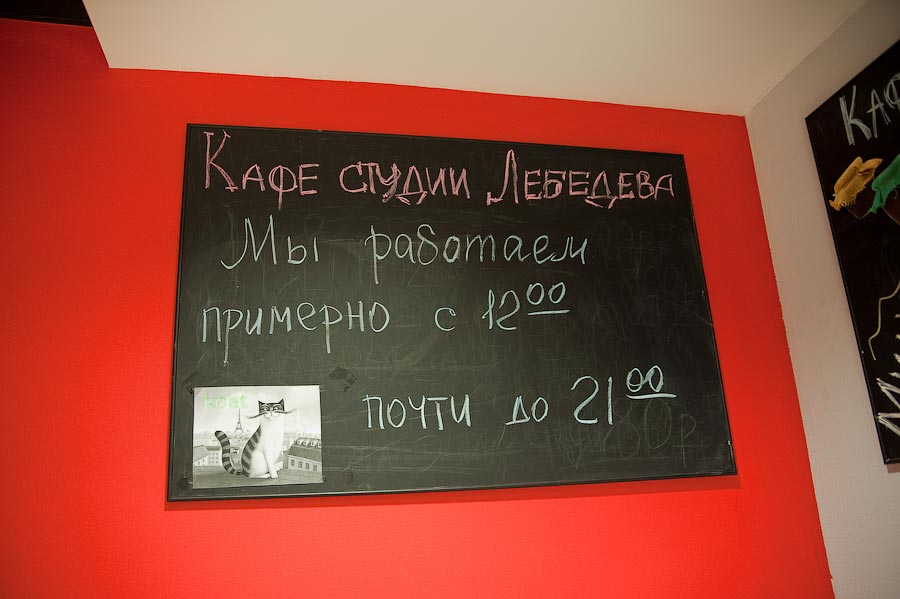 Кафе студии Лебедева
Мы работаем
примерно с 12⁰⁰
почти до 21⁰⁰
koat
Каф